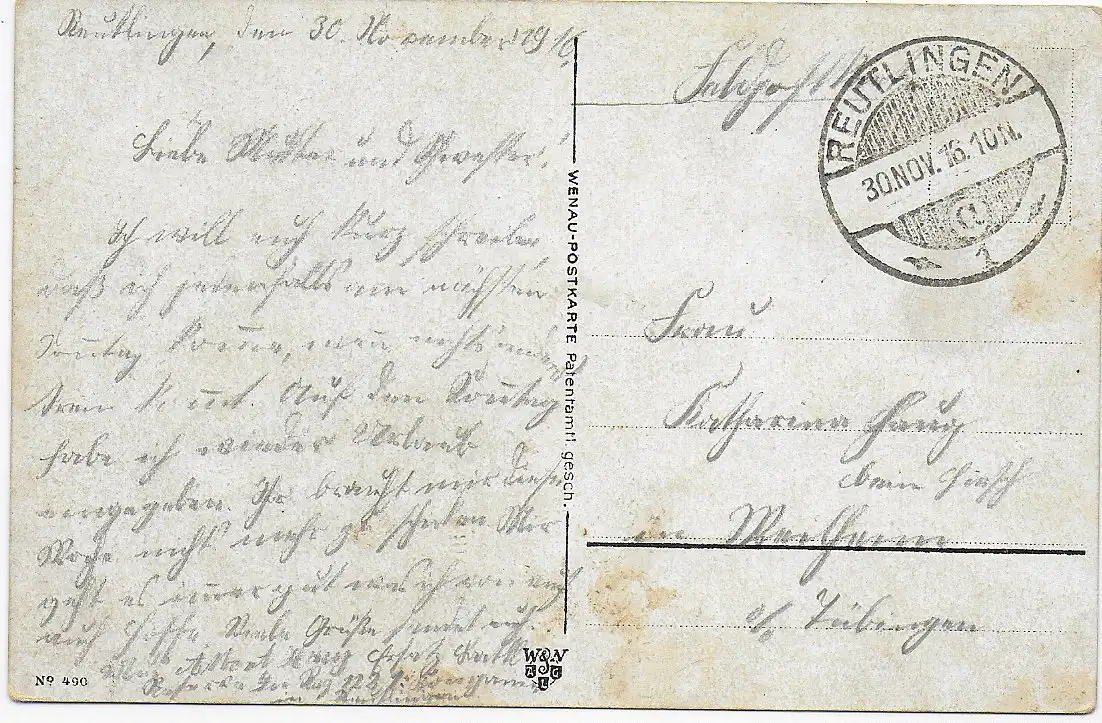 Reutlingen, den 30. November 1916.
Liebe Mutter und Gwester!
Ich will euch kurz schreiben,
daß ich jedenfalls am nächsten
Sonntag komme, wenn nichts anderes
kommt. Auf den Sonntag
habe ich wieder Urlaub
eingegeben. Ihr braucht mir diese
Woche nicht mehr zu schicken Mir
geht es immer gut was ich von euch
auch hoffe Viele Grüße sendet euch
Albert Haug Ersatz Batl.
Reserve Inf Reg 122 Kompanie
in Reutlingen
No 490
WENAU-POSTKARTE Patentamtl. gesch.
W&N
Feldpost
REUTLINGEN
30.NOV.16.10N.
1
Frau
Katharina Haug
beim Hirsch
in Weilheim
a/ Tübingen